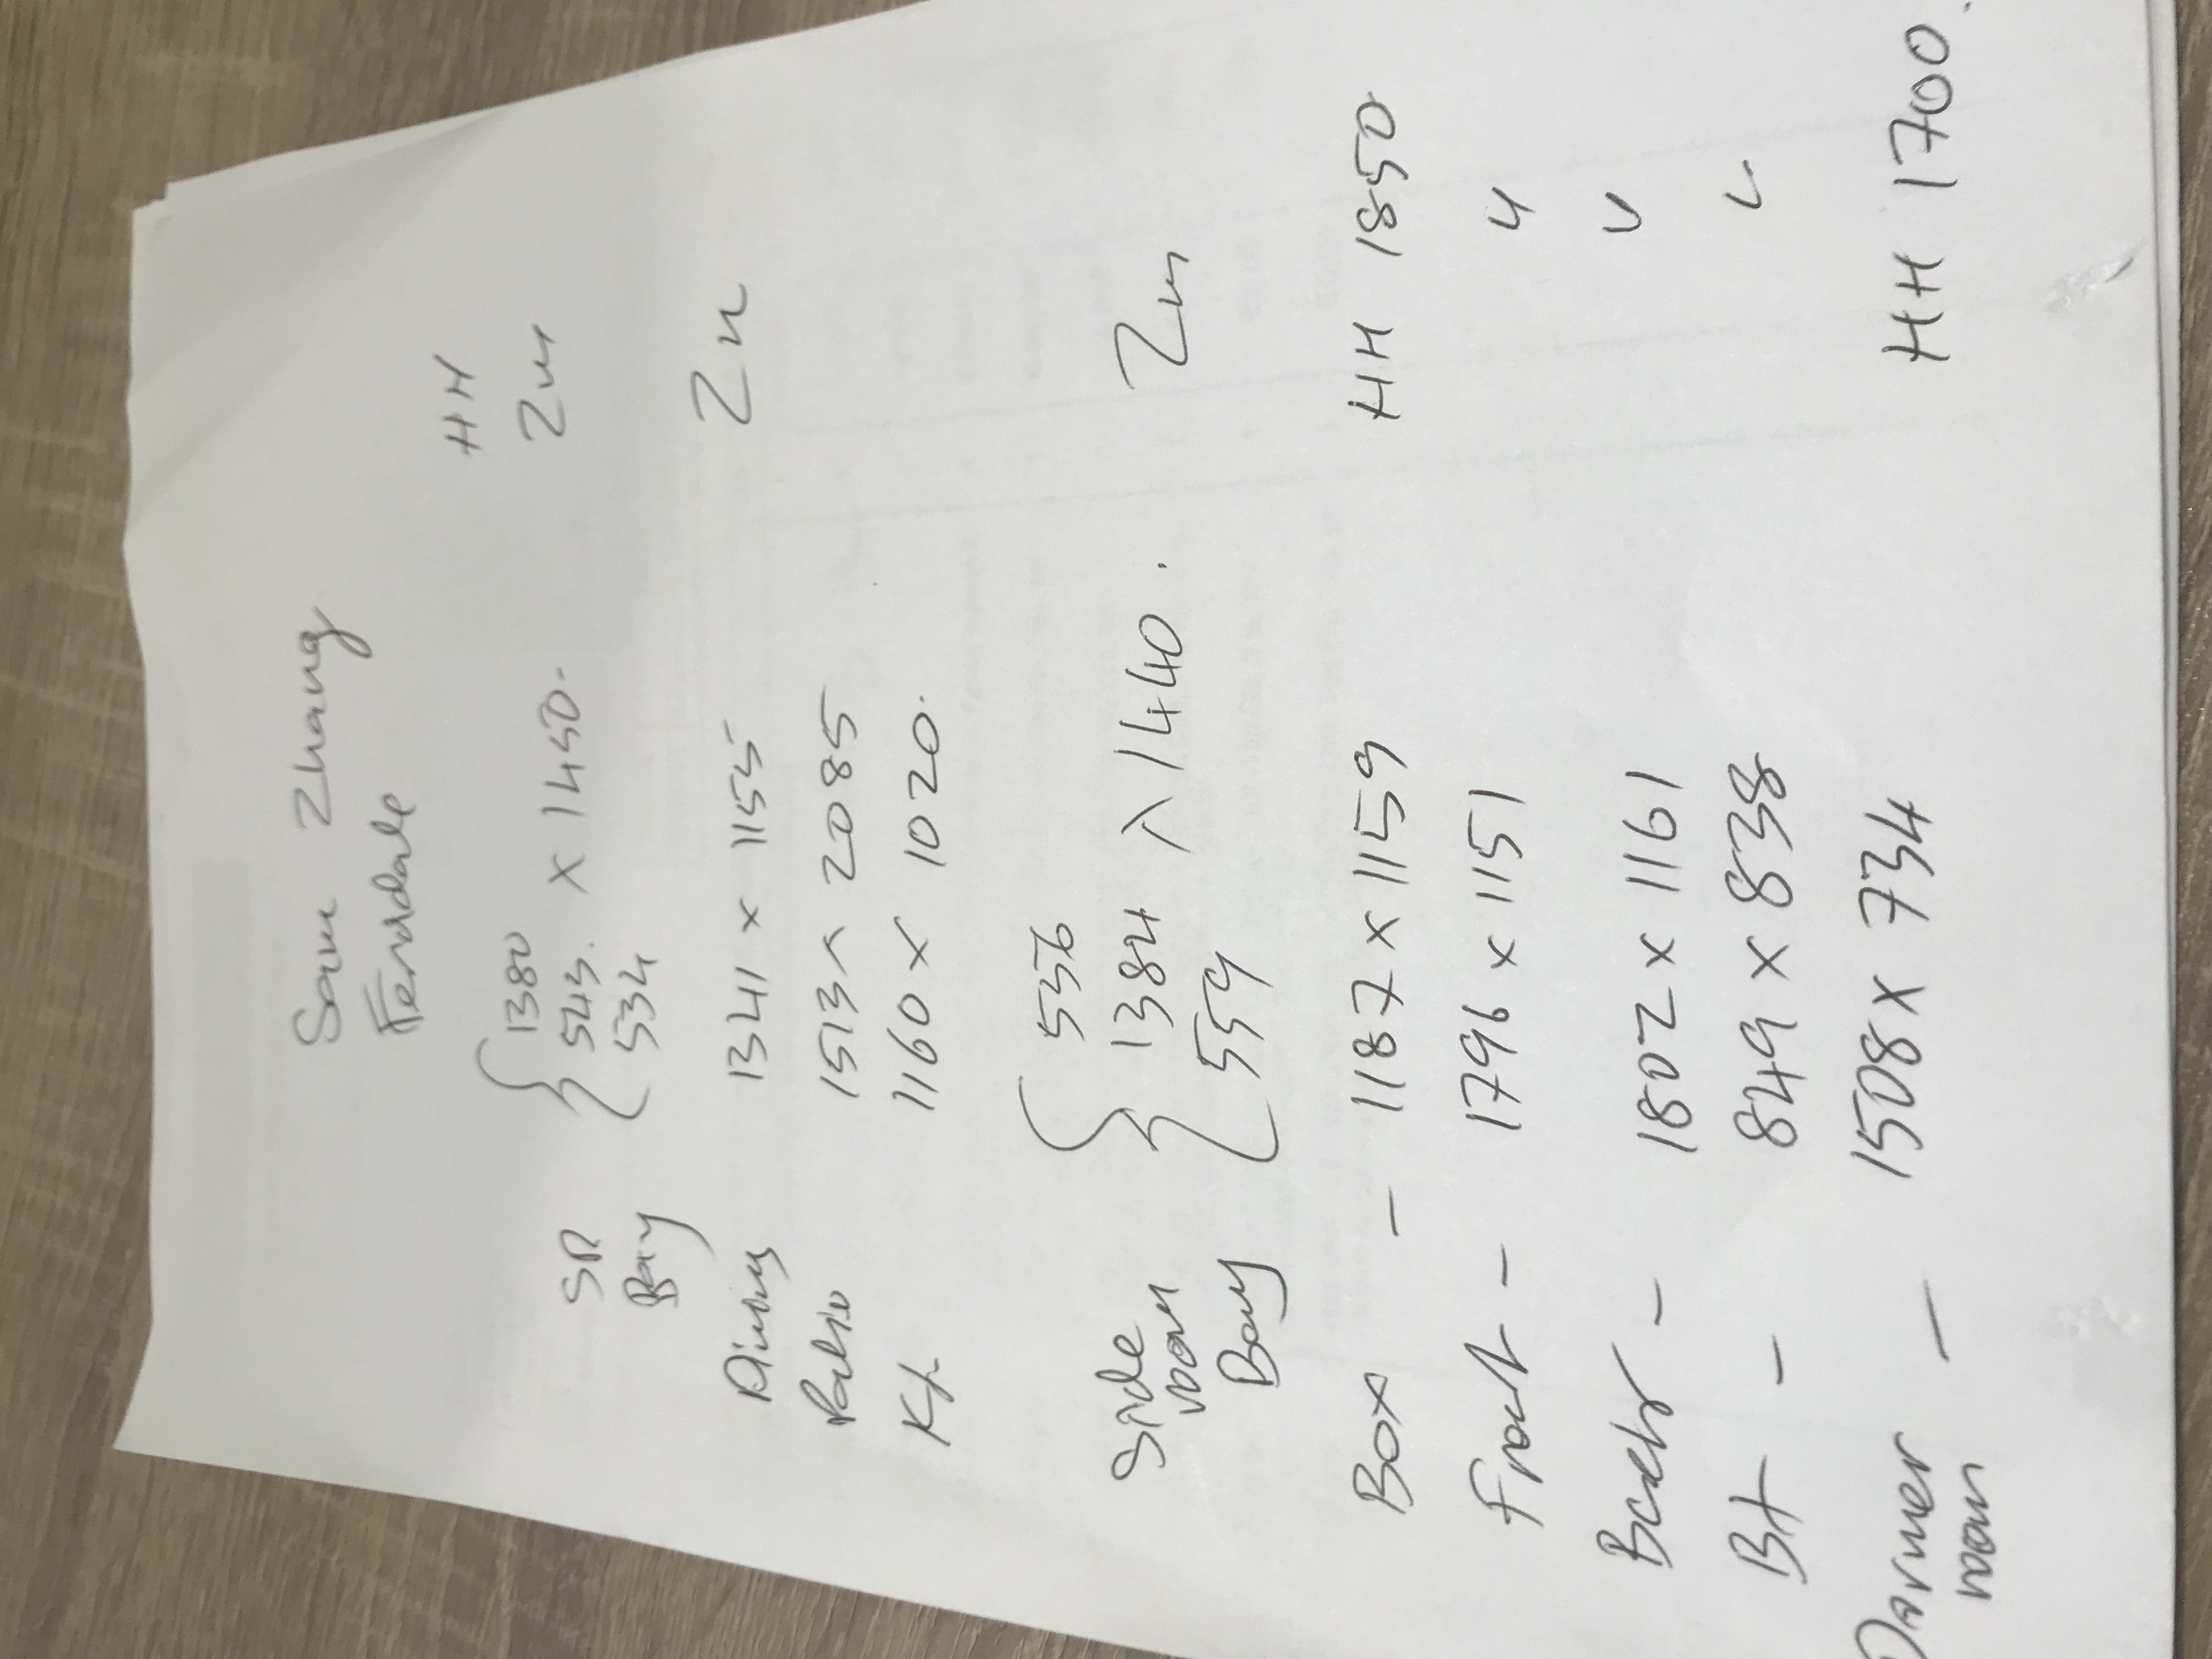 Sam Zhang
Ferndale
HH
1380
SR { 543. x 1450. 2m
Bay 534
Dining 1341 x 1155 2m
Patio 1513 x 2085
K/. 1160 x 1020.
556
Side room { 1384 x 1440. 2m
Bay 559
Box - 1187 x 1159 HH 1850
Front - 1796 x 1151 "
Back - 1802 x 1161 "
Bt - 849 x 838 "
Dormer - 1508 x 734 HH 1700.
room